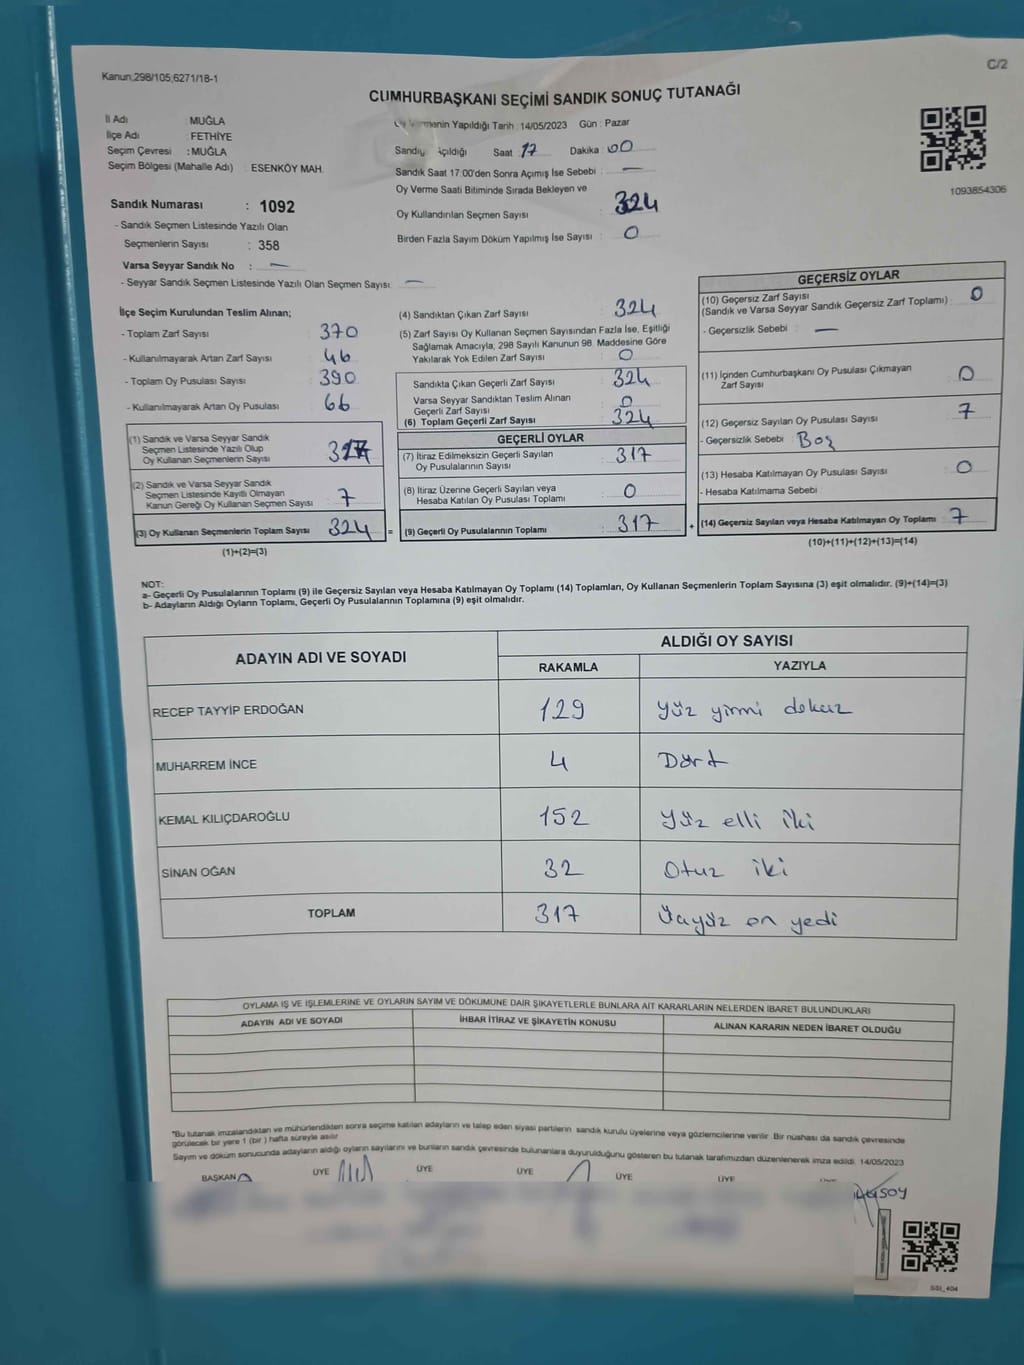 Kanun;298/105;6271/18-1
C/2
CUMHURBAŞKANI SEÇİMİ SANDIK SONUÇ TUTANAĞI
İl Adı : MUĞLA
İlçe Adı : FETHİYE
Seçim Çevresi : MUĞLA
Seçim Bölgesi (Mahalle Adı) : ESENKÖY MAH.
Yapıldığı Tarih :14/05/2023 Gün : Pazar
Açıldığı Saat 17 Dakika 00
Sandık Saat 17:00'den Sonra Açımış İse Sebebi : —
Oy Verme Saati Bitiminde Sırada Bekleyen ve
Oy Kullandırılan Seçmen Sayısı : 324
Birden Fazla Sayım Döküm Yapılmış İse Sayısı : 0
1093854306
Sandık Numarası : 1092
- Sandık Seçmen Listesinde Yazılı Olan
Seçmenlerin Sayısı : 358
Varsa Seyyar Sandık No : —
- Seyyar Sandık Seçmen Listesinde Yazılı Olan Seçmen Sayısı: —
İlçe Seçim Kurulundan Teslim Alınan;
- Toplam Zarf Sayısı : 370
- Kullanılmayarak Artan Zarf Sayısı : 46
- Toplam Oy Pusulası Sayısı : 390
- Kullanılmayarak Artan Oy Pusulası : 66
(1) Sandık ve Varsa Seyyar Sandık
Seçmen Listesinde Yazılı Olup
Oy Kullanan Seçmenlerin Sayısı : 317
(2) Sandık ve Varsa Seyyar Sandık
Seçmen Listesinde Kayıtlı Olmayan
Kanun Gereği Oy Kullanan Seçmen Sayısı : 7
(3) Oy Kullanan Seçmenlerin Toplam Sayısı : 324 =
(1)+(2)=(3)
(4) Sandıktan Çıkan Zarf Sayısı : 324
(5) Zarf Sayısı Oy Kullanan Seçmen Sayısından Fazla İse, Eşitliği
Sağlamak Amacıyla, 298 Sayılı Kanunun 98. Maddesine Göre
Yakılarak Yok Edilen Zarf Sayısı : 0
Sandıkta Çıkan Geçerli Zarf Sayısı : 324
Varsa Seyyar Sandıktan Teslim Alınan
Geçerli Zarf Sayısı : 0
(6) Toplam Geçerli Zarf Sayısı : 324
GEÇERLİ OYLAR
(7) İtiraz Edilmeksizin Geçerli Sayılan
Oy Pusulalarının Sayısı : 317
(8) İtiraz Üzerine Geçerli Sayılan veya
Hesaba Katılan Oy Pusulası Toplamı : 0
(9) Geçerli Oy Pusulalarının Toplamı : 317 +
GEÇERSİZ OYLAR
(10) Geçersiz Zarf Sayısı
(Sandık ve Varsa Seyyar Sandık Geçersiz Zarf Toplamı) : 0
- Geçersizlik Sebebi : —
(11) İçinden Cumhurbaşkanı Oy Pusulası Çıkmayan
Zarf Sayısı : 0
(12) Geçersiz Sayılan Oy Pusulası Sayısı : 7
- Geçersizlik Sebebi : Boş
(13) Hesaba Katılmayan Oy Pusulası Sayısı : 0
- Hesaba Katılmama Sebebi :
(14) Geçersiz Sayılan veya Hesaba Katılmayan Oy Toplamı : 7
(10)+(11)+(12)+(13)=(14)
NOT:
a- Geçerli Oy Pusulalarının Toplamı (9) ile Geçersiz Sayılan veya Hesaba Katılmayan Oy Toplamı (14) Toplamları, Oy Kullanan Seçmenlerin Toplam Sayısına (3) eşit olmalıdır. (9)+(14)=(3)
b- Adayların Aldığı Oyların Toplamı, Geçerli Oy Pusulalarının Toplamına (9) eşit olmalıdır.
ADAYIN ADI VE SOYADI
ALDIĞI OY SAYISI
RAKAMLA YAZIYLA
RECEP TAYYİP ERDOĞAN 129 Yüz yirmi dokuz
MUHARREM İNCE 4 Dört
KEMAL KILIÇDAROĞLU 152 Yüz elli iki
SİNAN OĞAN 32 Otuz iki
TOPLAM 317 Üçyüz on yedi
OYLAMA İŞ VE İŞLEMLERİNE VE OYLARIN SAYIM VE DÖKÜMÜNE DAİR ŞİKAYETLERLE BUNLARA AİT KARARLARIN NELERDEN İBARET BULUNDUKLARI
ADAYIN ADI VE SOYADI İHBAR İTİRAZ VE ŞİKAYETİN KONUSU ALINAN KARARIN NEDEN İBARET OLDUĞU
"Bu tutanak imzalandıktan ve mühürlendikten sonra seçime katılan adayların ve talep eden siyasi partilerin sandık kurulu üyelerine veya gözlemcilerine verilir. Bir nüshası da sandık çevresinde
görülecek bir yere 1 (bir) hafta süreyle asılır.
Sayım ve döküm sonucunda adayların aldığı oyların sayılarını ve bunların sandık çevresinde bulunanlara duyurulduğunu gösteren bu tutanak tarafımızdan düzenlenerek imza edildi. 14/05/2023
BAŞKAN ÜYE ÜYE ÜYE ÜYE ÜYE